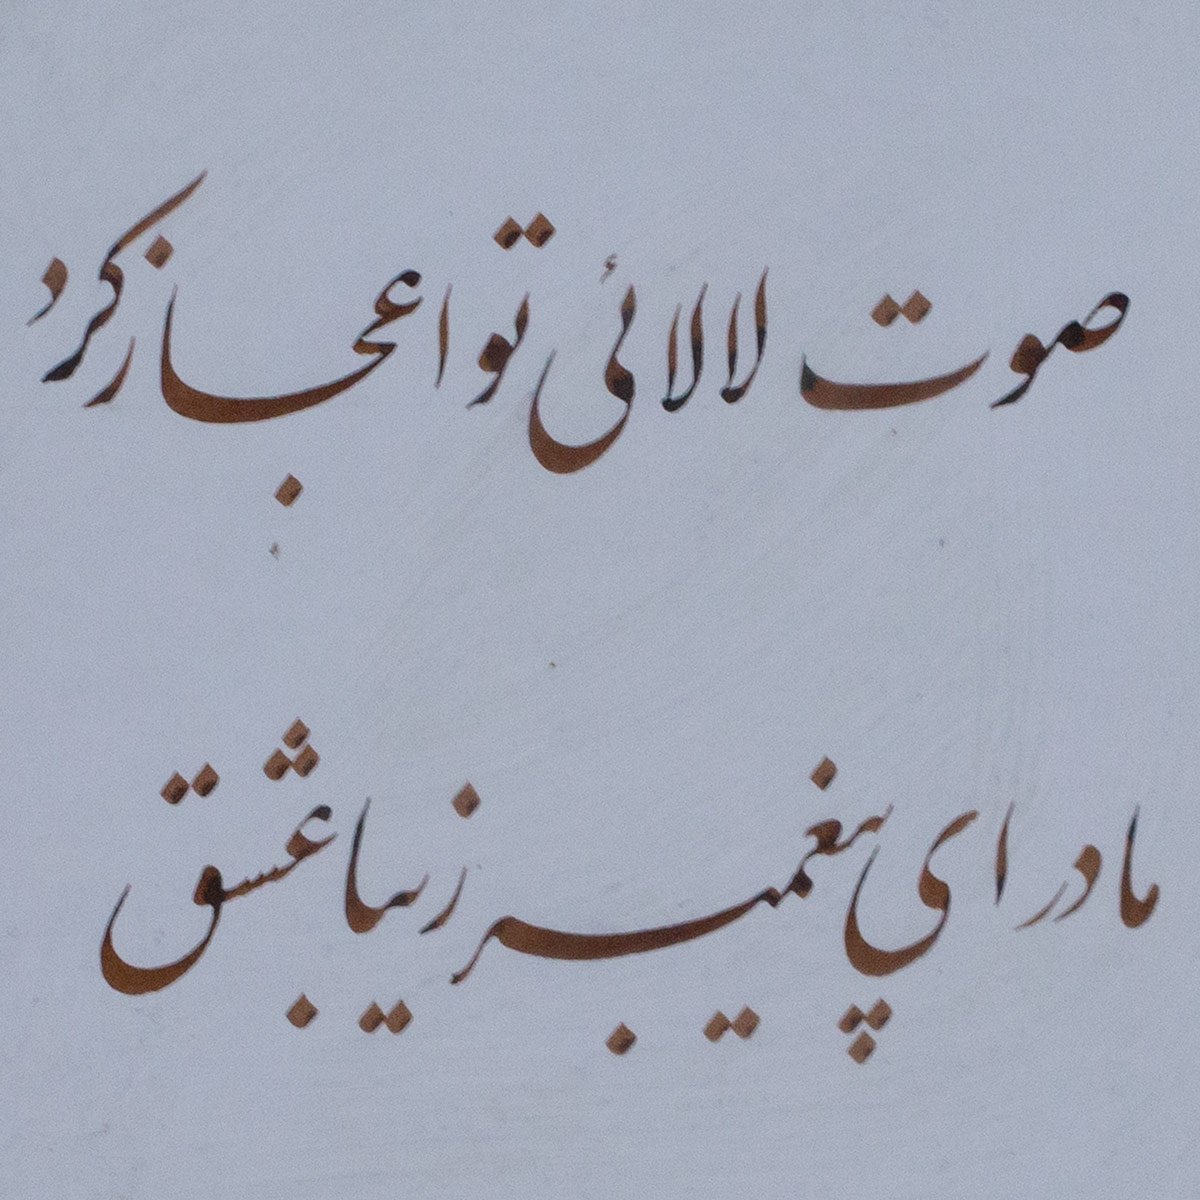 صوت لالائی تو اعجاز کرد
مادر ای پیغمبر زیبا عشق